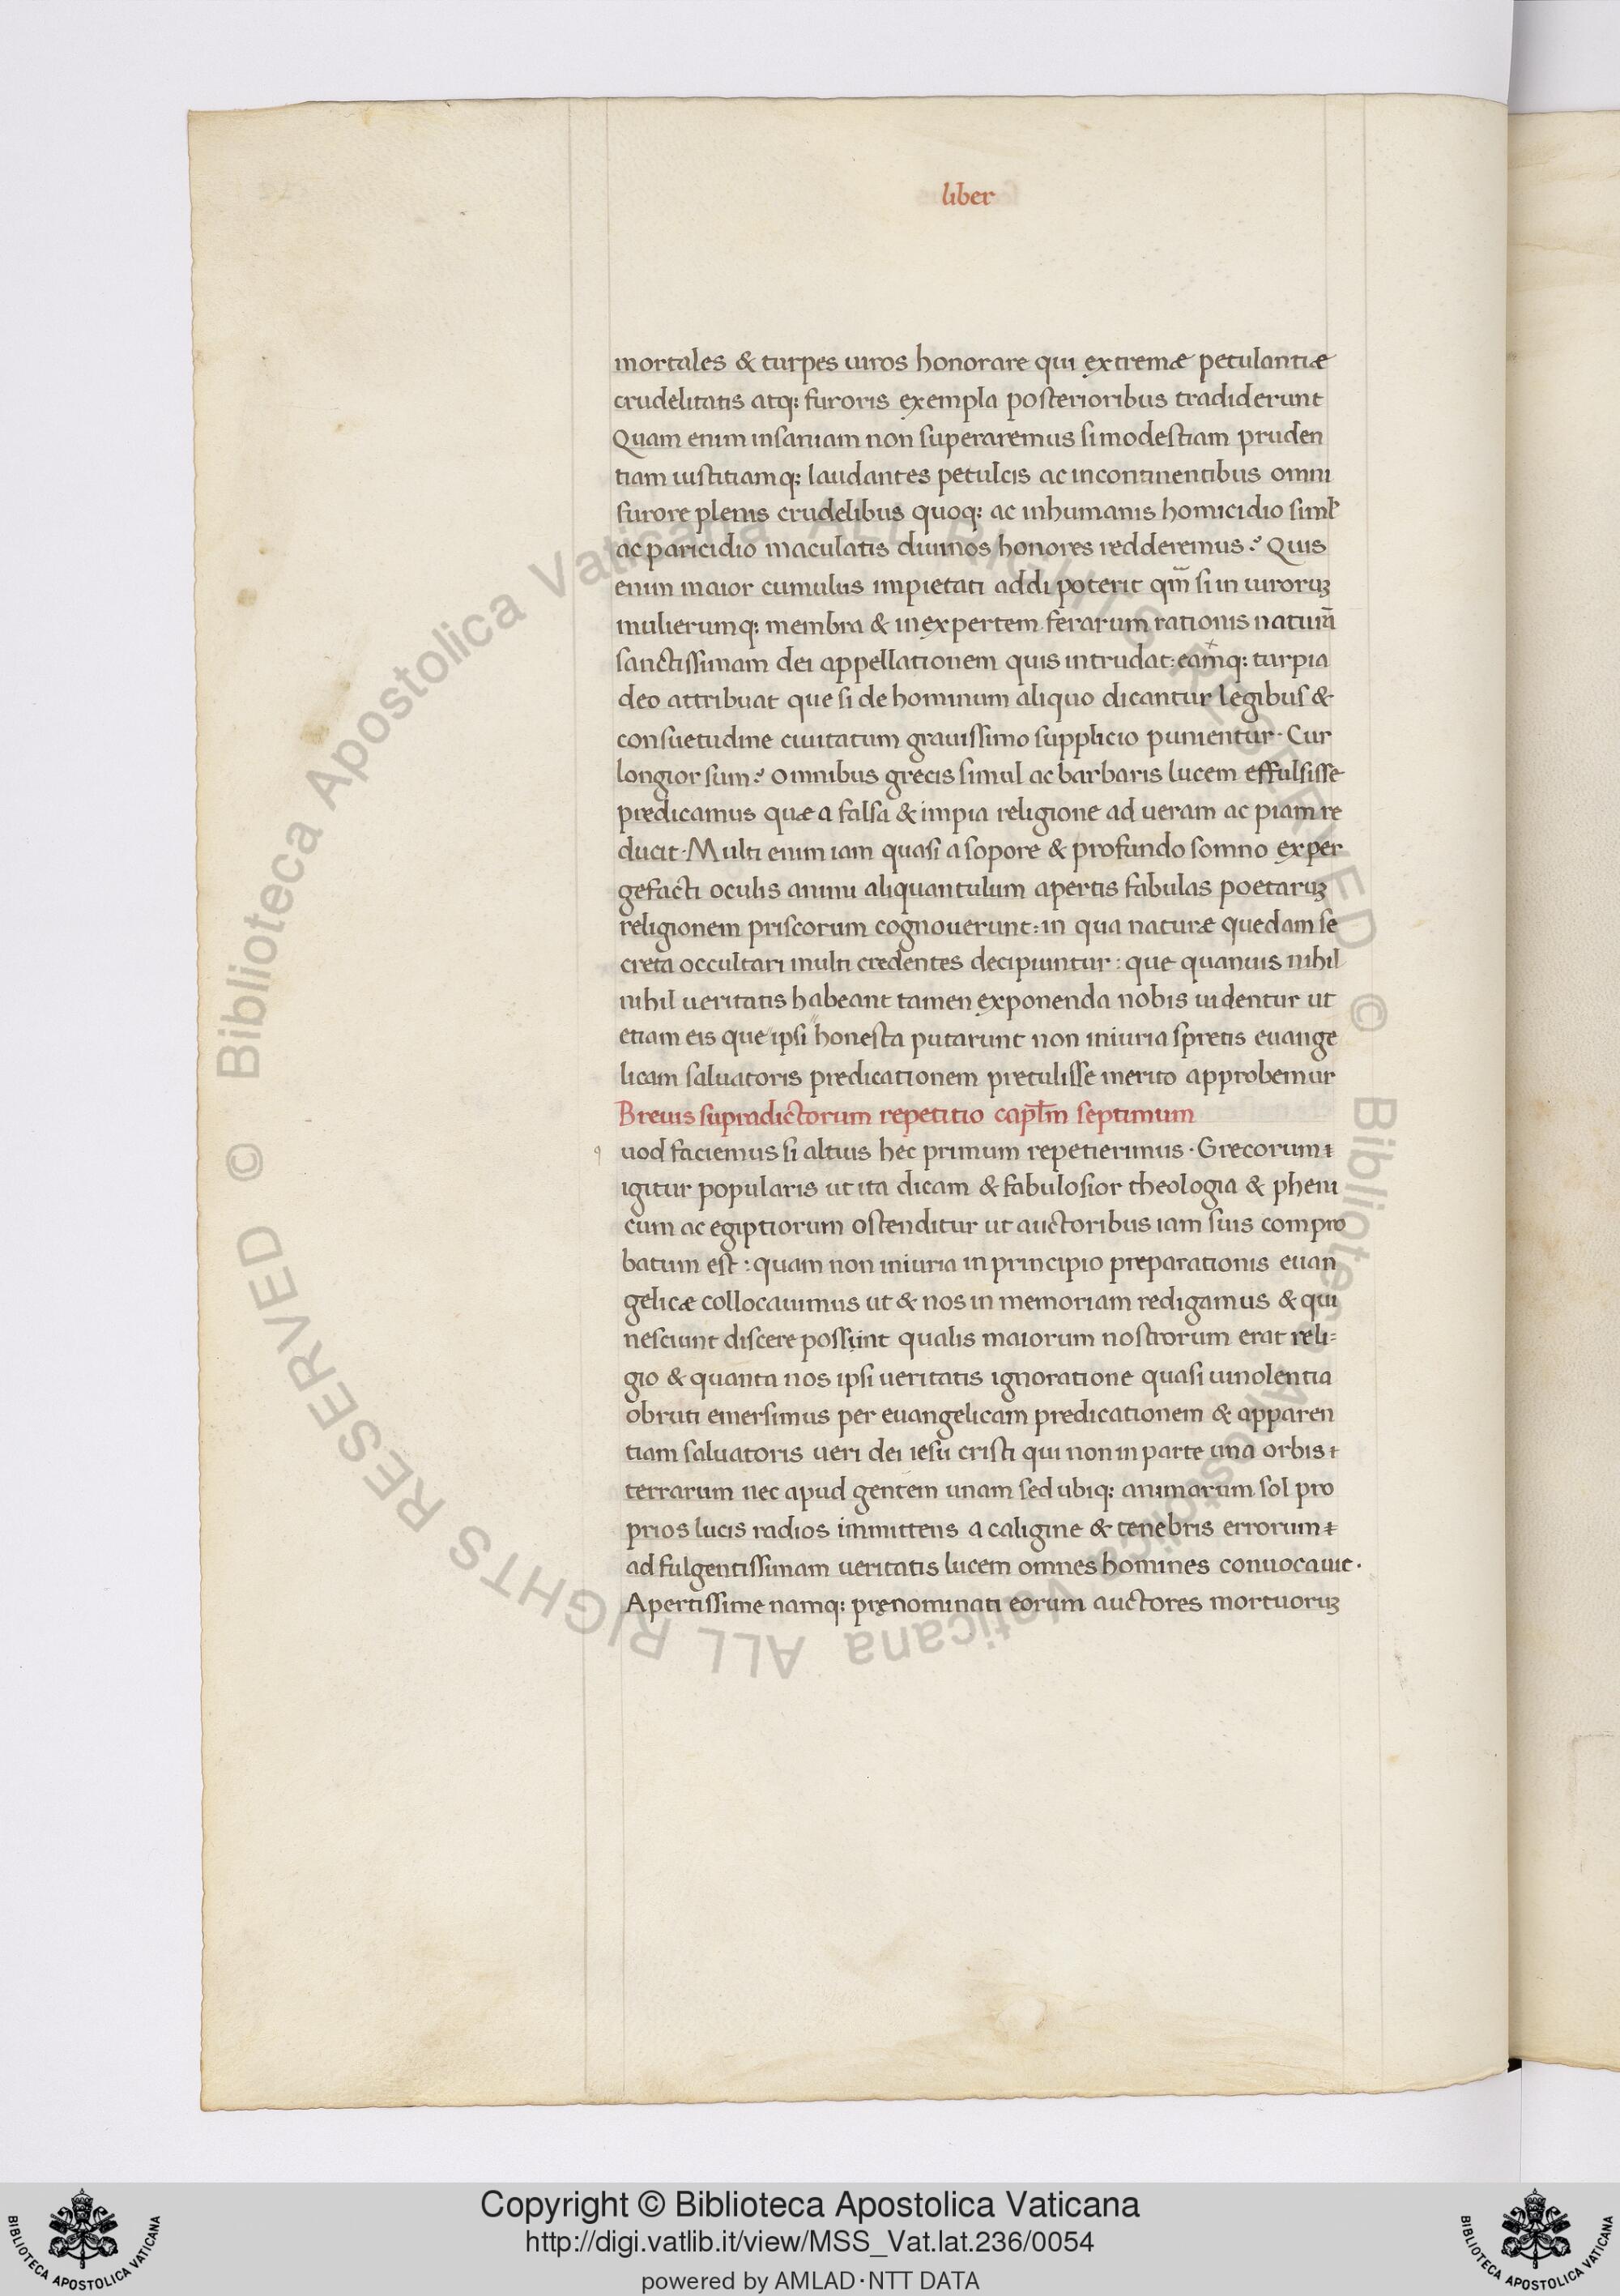 liber
mortales & turpes uiros honorare qui extremæ petulantiæ
crudelitatis atq: furoris exempla posterioribus tradiderunt
Quam enim insaniam non superaremus si modestiam pruden
tiam iustitiamq: laudantes petulcis ac incontinentibus omni
furore plenis crudelibus quoq: ac inhumanis homicidio siml̃
ac paricidio maculatis diuinos honores redderemus? Quis
enim maior cumulus impietati addi poterit qm̃ si in uiroruꝫ
mulierumq: membra & in expertem ferarum rationis naturā
sanctissimam dei appellationem quis intrudat: eamq: turpia
deo attribuat que si de hominum aliquo dicantur legibus &
consuetudine ciuitatum grauissimo supplicio punientur · Cur
longior sum? omnibus grecis simul ac barbaris lucem effulsisse
predicamus quæ a falsa & impia religione ad ueram ac piam re
ducit · Multi enim iam quasi a sopore & profundo somno exper
gefacti oculis animi aliquantulum apertis fabulas poetaruꝫ
religionem priscorum cognouerunt: in qua naturæ quedam se
creta occultari multi credentes decipiuntur: que quanuis nihil
nihil ueritatis habeant tamen exponenda nobis uidentur ut
etiam eis que ipsi honesta putarunt non iniuria spretis euange
licam saluatoris predicationem pretulisse merito approbemur
Breuis supradictorum repetitio capl̃m septimum
q uod faciemus si altius hec primum repetierimus · Grecorum
igitur popularis ut ita dicam & fabulosior theologia & pheni
cum ac egiptiorum ostenditur ut auctoribus iam suis compro
batum est: quam non iniuria in principio preparationis euan
gelicæ collocauimus ut & nos in memoriam redigamus & qui
nesciunt discere possunt qualis maiorum nostrorum erat reli=
gio & quanta nos ipsi ueritatis ignoratione quasi uinolentia
obruti emersimus per euangelicam predicationem & apparen
tiam saluatoris ueri dei iesu cristi qui non in parte una orbis
terrarum nec apud gentem unam sed ubiq: animarum sol pro
prios lucis radios immittens a caligine & tenebris errorum
ad fulgentissimam ueritatis lucem omnes homines conuocauit ·
Apertissime namq: pręnominati eorum auctores mortuoruꝫ
© Biblioteca Apostolica Vaticana ALL RIGHTS RESERVED © Biblioteca Apostolica Vaticana ALL RIGHTS RESERVED
Copyright © Biblioteca Apostolica Vaticana
http://digi.vatlib.it/view/MSS_Vat.lat.236/0054
powered by AMLAD·NTT DATA
BIBLIOTECA APOSTOLICA VATICANA
BIBLIOTECA APOSTOLICA VATICANA